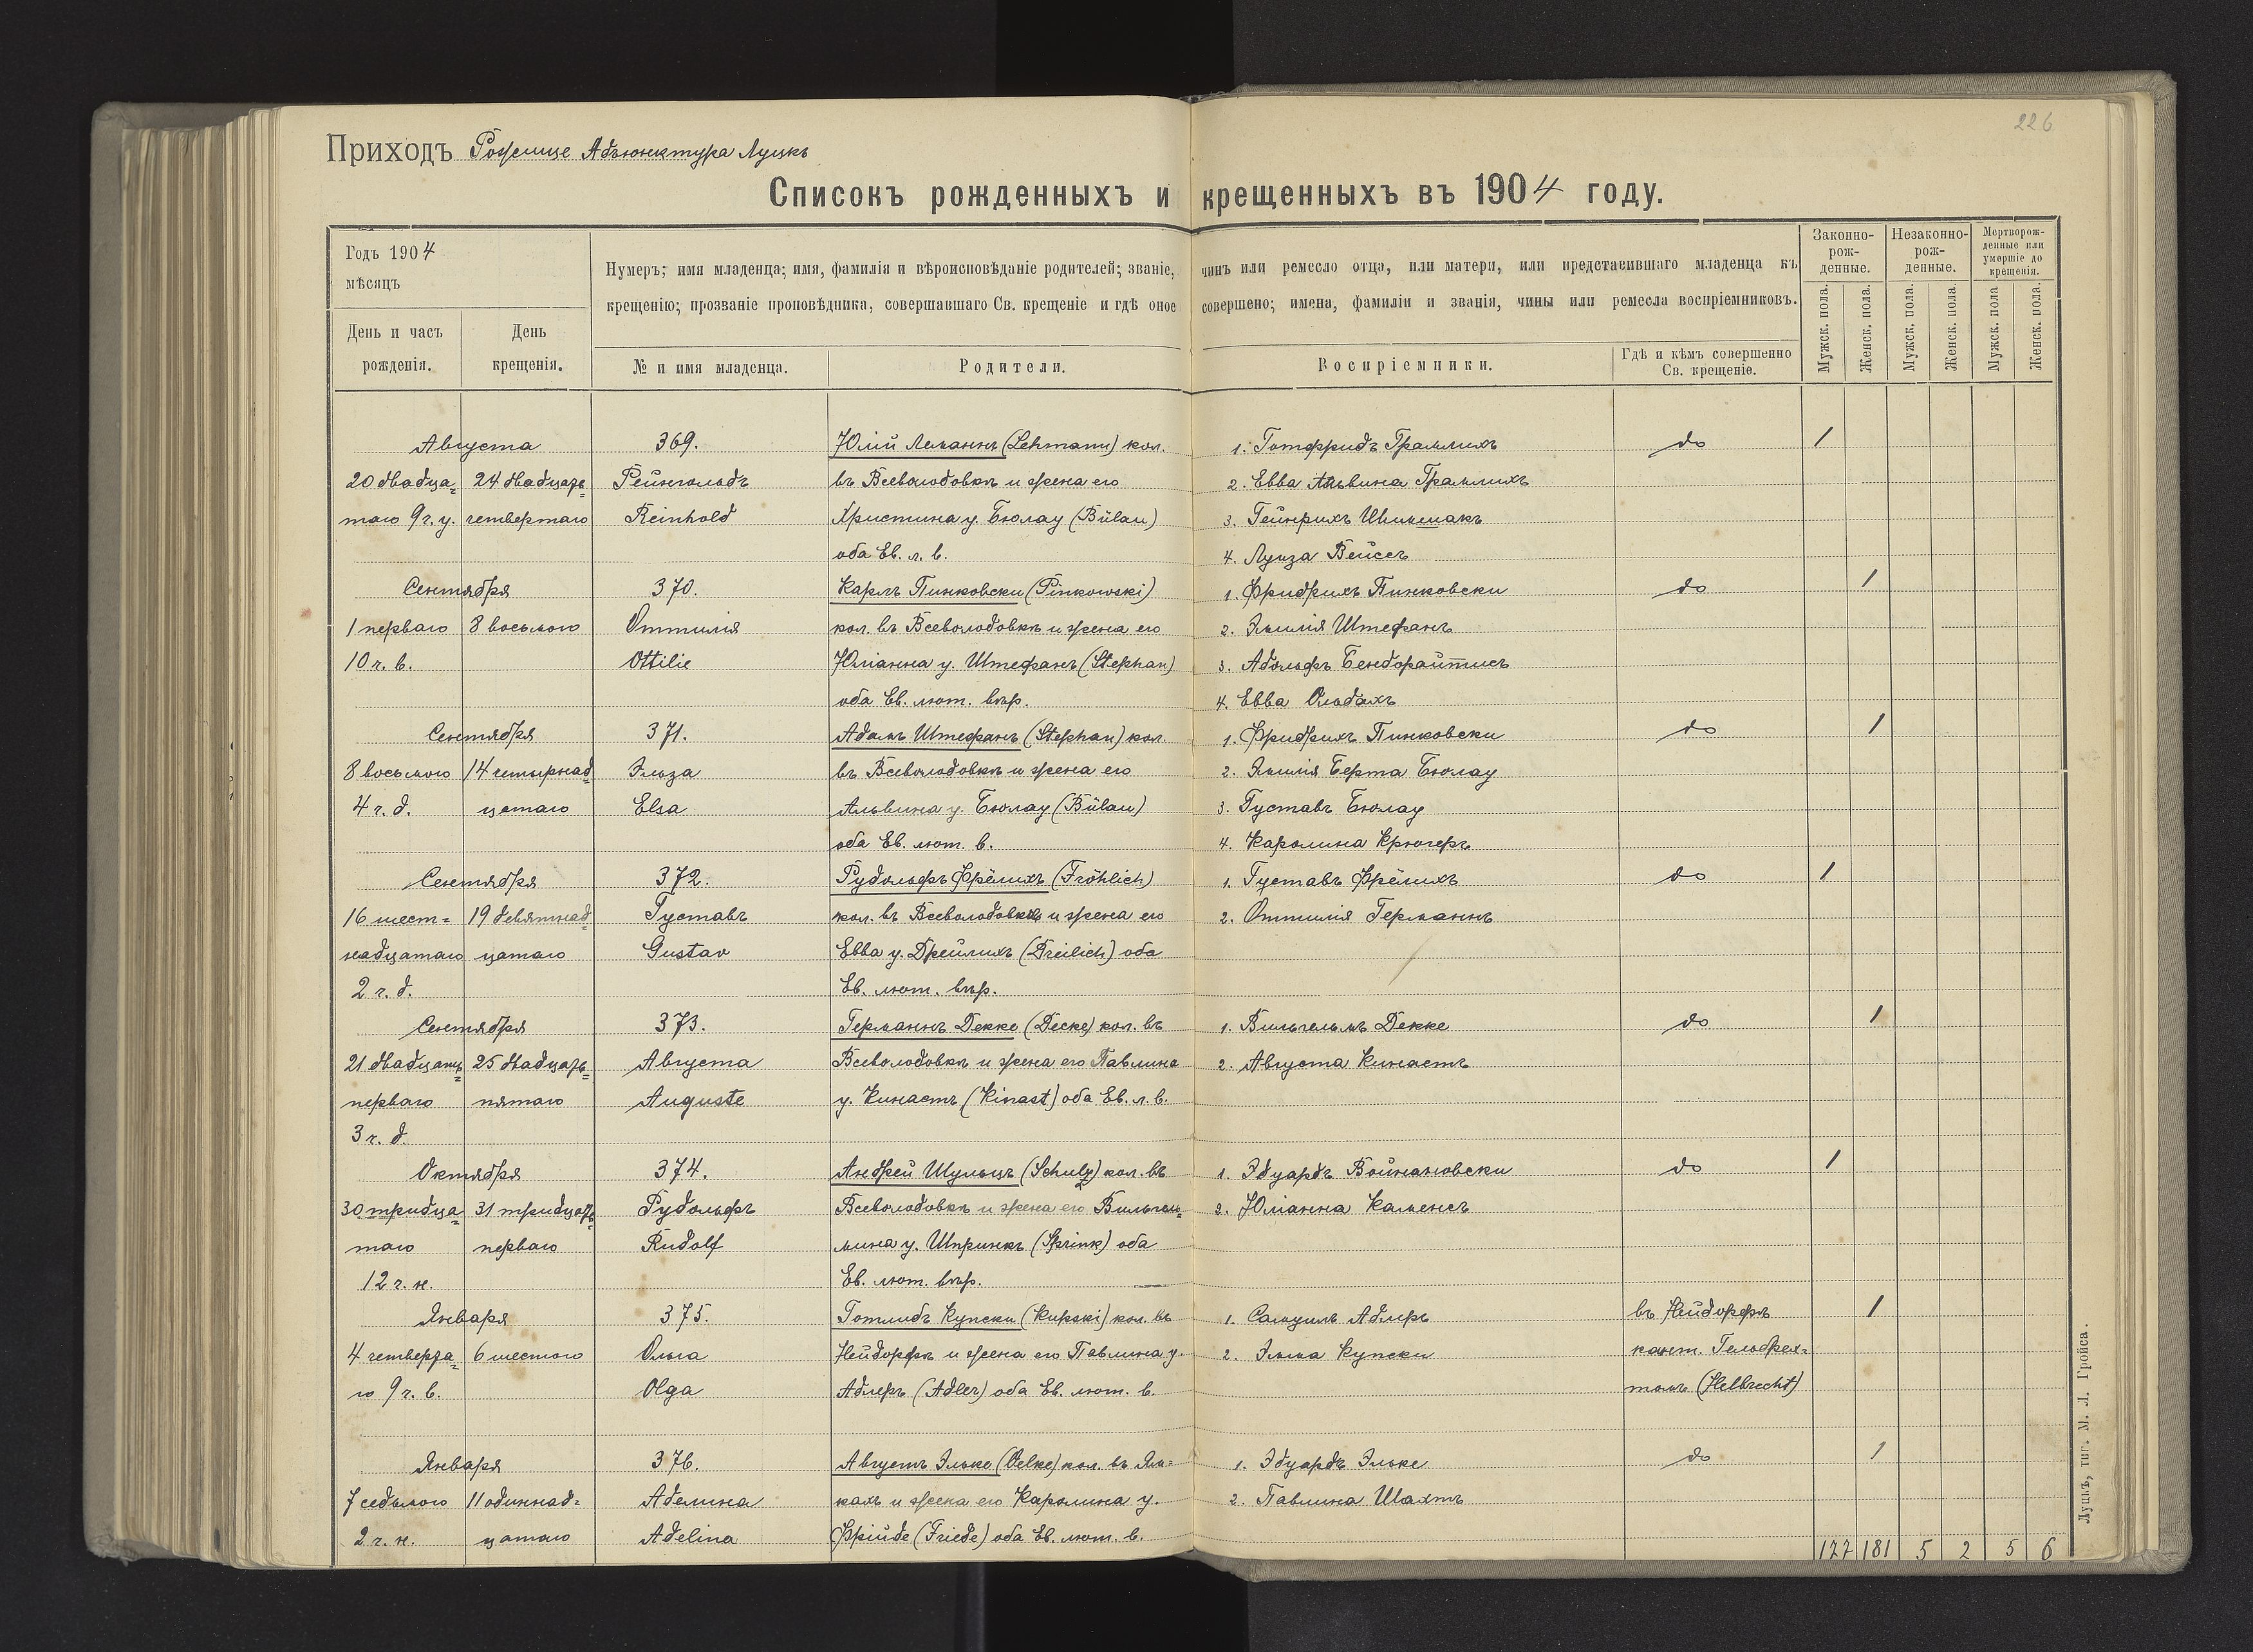 226
Приходъ Рожище Адъюнктура Луцкъ
Списокъ рожденныхъ и крещенныхъ въ 1904 году.
Годъ 1904
мѣсяцъ
День и часъ рожденія.
День крещенія.
Нумеръ; имя младенца; имя, фамилія и вѣроисповѣданіе родителей; званіе, чинъ или ремесло отца, или матери, или представившаго младенца къ
крещенію; прозваніе проповѣдника, совершавшаго Св. крещеніе и гдѣ оное совершено; имена, фамиліи и званія, чины или ремесла воспріемниковъ.
№ и имя младенца.
Родители.
Воспріемники.
Гдѣ и кѣмъ совершенно Св. крещеніе.
Законно-рож-денные.
Незаконно-рож-денные.
Мертворож-денные или умершіе до крещенія.
Мужск. пола. Женск. пола. Мужск. пола. Женск. пола. Мужск. пола Женск. пола.
Августа 369. Юлій Леманнъ (Lehmann) кол. 1. Готфридъ Грамлихъ до 1
20 двадца= 24 двадцать= Рейнгольдъ въ Всеволодовкѣ и жена его 2. Евва Альвина Грамлихъ
таго 9 ч. у. четвертаго Reinhold Христина у. Бюлау (Bülau) 3. Гейнрихъ
оба Ев. л. в. 4. Луиза Вейсъ
Сентября 370. Карлъ Пинковски (Pinkowski) 1. Фридрихъ Пинковски до 1
1 перваго 8 восьмого Оттилія кол. въ Всеволодовкѣ и жена его 2. Эмилія Штефанъ
10 ч. в. Ottilie Юліанна у. Штефанъ (Stephan) 3. Адольфъ Бендорайтисъ
оба Ев. лют. вѣр. 4. Евва
Сентября 371. Адамъ Штефанъ (Stephan) кол. 1. Фридрихъ Пинковски до 1
8 восьмого 14 четырнад= Эльза въ Всеволодовкѣ и жена его 2. Эмилія Берта Бюлау
4 ч. д. цатаго Elsa Альвина у. Бюлау (Bülau) 3. Густавъ Бюлау
оба Ев. лют. в. 4. Каролина Крюгеръ
Сентября 372. Рудольфъ Фрёлихъ (Fröhlich) 1. Густавъ Фрёлихъ до 1
16 шест= 19 девятнад= Густавъ кол. въ Всеволодовкѣ и жена его 2. Оттилія Германнъ
надцатаго цатаго Gustav Евва у. Дрейлихъ (Dreilich) оба
2 ч. д. Ев. лют. вѣр.
Сентября 373. Германнъ Декке (Decke) кол. въ 1. Вильгельмъ Декке до 1
21 двадцать 25 двадцать= Августа Всеволодовкѣ и жена его Павлина 2. Августа Кинастъ
перваго пятаго Auguste у. Кинастъ (Kinast) оба Ев. л. в.
3 ч. д.
Октября 374. Андрей Шульцъ (Schulz) кол. въ 1. Эдуардъ Войнановски до 1
30 тридца= 31 тридцать= Рудольфъ Всеволодовкѣ и жена его Вильгель= 2. Юліанна Каменсъ
таго перваго Rudolf мина у. Шпринкъ (Sprink) оба
12 ч. н. Ев. лют. вѣр.
Января 375. Готлибъ Купски (Kupski) кол. въ 1. Самуилъ Адлеръ въ Нейдорфѣ 1
4 четверта= 6 шестого Ольга Нейдорфѣ и жена его Павлина у. 2. Эмма Купски кант. Гельбрех=
го 9 ч. в. Olga Адлеръ (Adler) оба Ев. лют. в. томъ (Helbrecht)
Января 376. Августъ Эльке (Oelke) кол. въ Ян= 1. Эдуардъ Эльке до 1
7 седьмого 11 одиннад= Аделина кахъ и жена его Каролина у. 2. Павлина Шахтъ
2 ч. н. цатаго Adelina Фрійде (Friede) оба Ев. лют. в.
177 181 5 2 5 6
Луцкъ, тип. М. Л. Гройса.